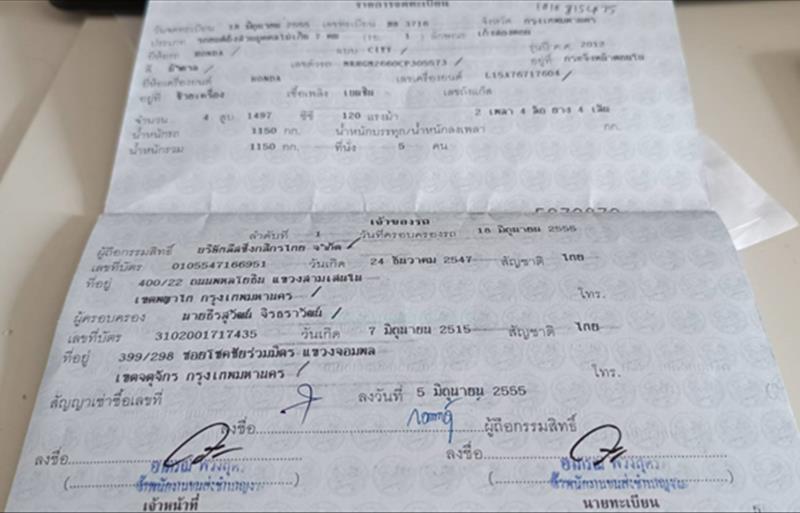 รายการจดทะเบียน
วันจดทะเบียน 18 มิถุนายน 2555 เลขทะเบียน 3716 จังหวัด กรุงเทพมหานคร
ประเภท รถยนต์นั่งส่วนบุคคลไม่เกิน 7 คน (รย. 1 ) ลักษณะ เก๋งสองตอน
ยี่ห้อรถ HONDA / แบบ CITY / รุ่นปี ค.ศ. 2012
สี / เลขตัวรถ MRHGM2660CP305573 / อยู่ที่
ยี่ห้อเครื่องยนต์ HONDA เลขเครื่องยนต์ L15A76717604 /
อยู่ที่ ซ้ายเครื่อง เชื้อเพลิง เบนซิน เลขถังแก๊ส
จำนวน 4 สูบ 1497 ซีซี 120 แรงม้า 2 เพลา 4 ล้อ ยาง 4 เส้น
น้ำหนักรถ 1150 กก. น้ำหนักบรรทุก/น้ำหนักลงเพลา กก.
น้ำหนักรวม 1150 กก. ที่นั่ง 5 คน
เจ้าของรถ
ลำดับที่ 1 วันที่ครอบครองรถ 18 มิถุนายน 2555
ผู้ถือกรรมสิทธิ์ บริษัทลีสซิ่งกสิกรไทย จำกัด /
เลขที่บัตร 0105547166951 วันเกิด 24 ธันวาคม 2547 สัญชาติ ไทย
ที่อยู่ 400/22 ถนนพหลโยธิน แขวงสามเสนใน
เขตพญาไท กรุงเทพมหานคร / โทร.
ผู้ครอบครอง นายธีรสูวัฒน์ จิรธราวัฒน์ /
เลขที่บัตร 3102001717435 วันเกิด 7 มิถุนายน 2515 สัญชาติ ไทย
ที่อยู่ 399/298 ซอยโชคชัยร่วมมิตร แขวงจอมพล
เขตจตุจักร กรุงเทพมหานคร / โทร.
สัญญาเช่าซื้อเลขที่ ลงวันที่ 5 มิถุนายน 2555
ลงชื่อ ผู้ถือกรรมสิทธิ์
ลงชื่อ ลงชื่อ
เจ้าหน้าที่ นายทะเบียน